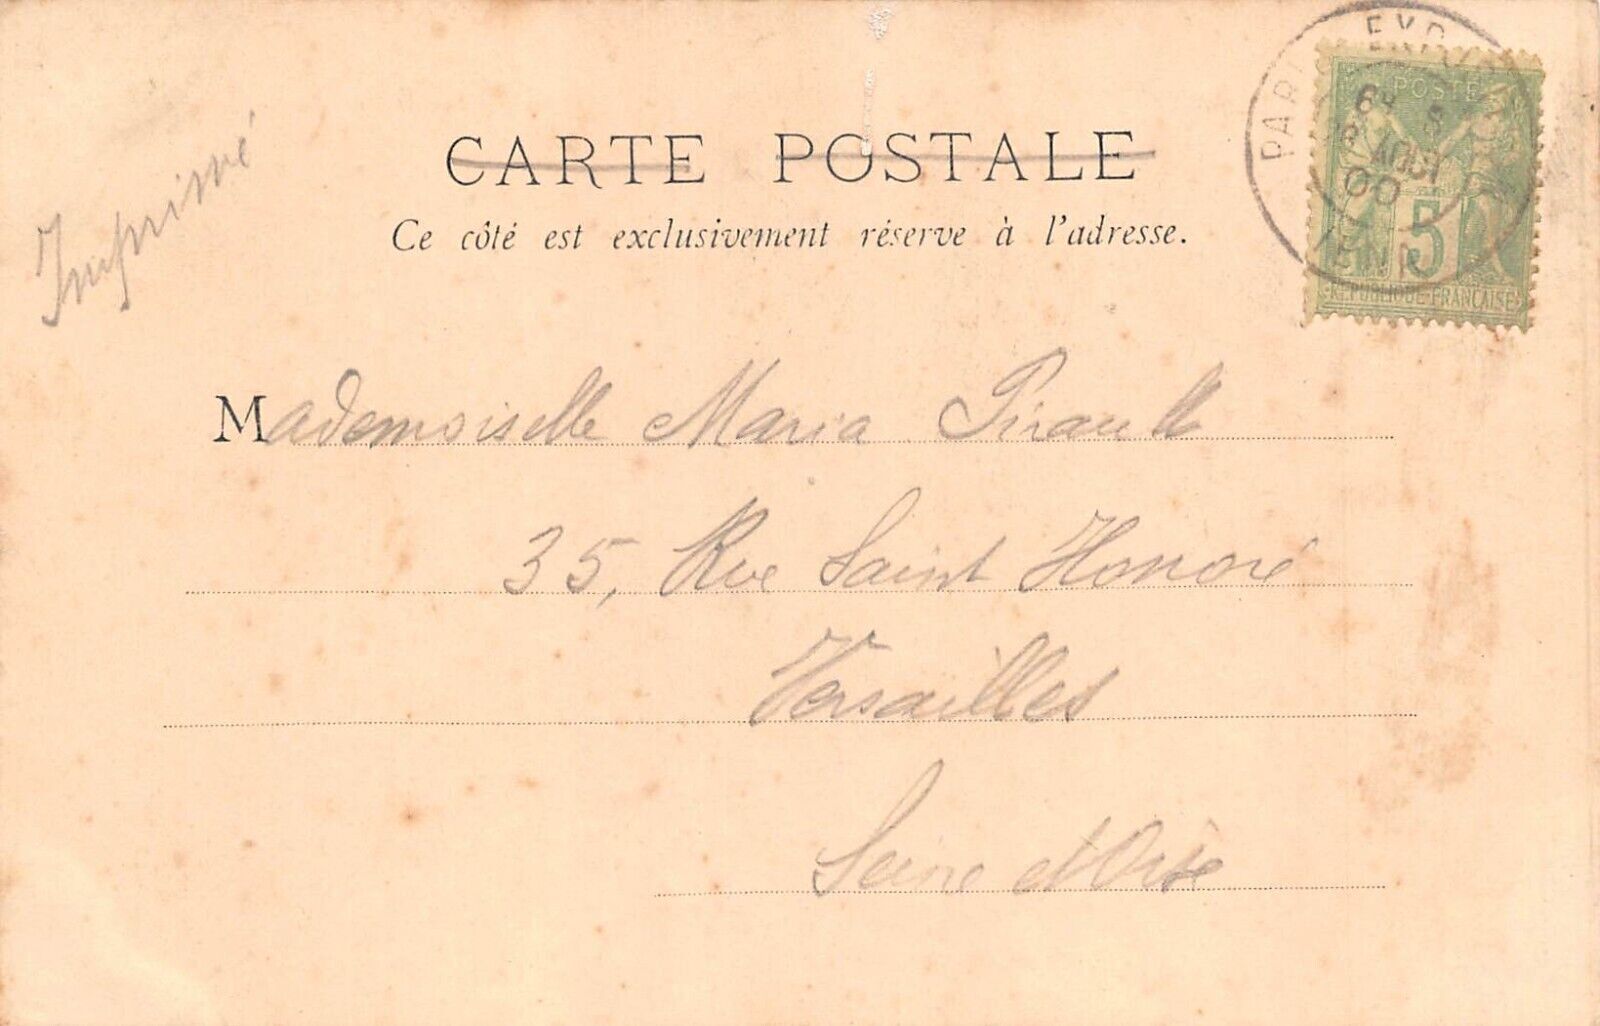 Imprimé
CARTE POSTALE
Ce côté est exclusivement réservé à l'adresse.
PARIS EXPOSITION
6E 5
8 AOUT
00
POSTE
5
REPUBLIQUE FRANÇAISE
Mademoiselle Maria Pirault
35, Rue Saint Honoré
Versailles
Seine et Oise